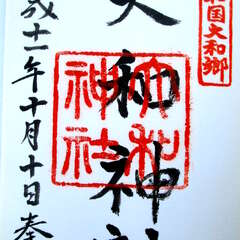 和国大和郷
大和神社
大和神社
成十一年十月十日奉